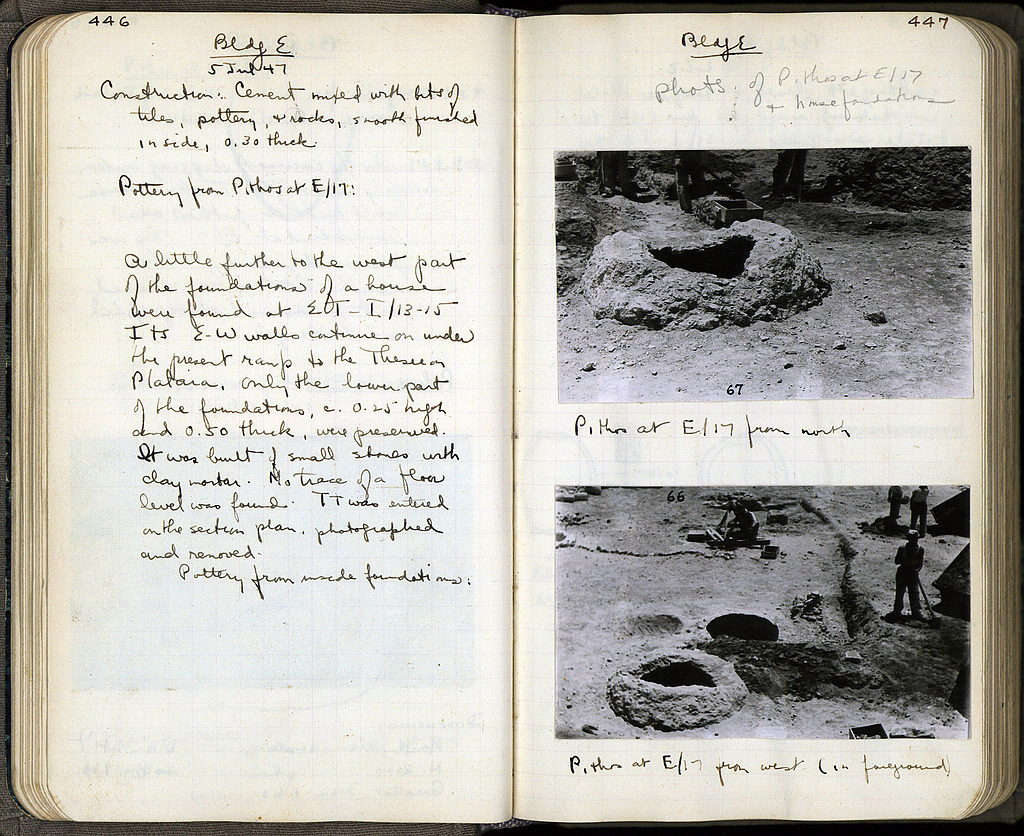 446
Bldg E
5 Jul 47
Construction: Cement mixed with bits of
tiles pottery, & rocks, smooth finished
inside, 0.30 thick
Pottery from Pithos at E/17:
A little further to the west part
of the foundations of a house
were found at
Its E-W walls continue on under
the present ramp to the Theseion
Plataia, only the lower part
of the foundations, c. 0.25 high
and 0.50 thick, were preserved.
It was built of small stones with
clay mortar. No trace of a floor
level was found. It was entered
on the section plan, photographed
and removed.
Pottery from inside foundations:
447
Bldg E
phots of Pithos at E/17
& house foundations
67
Pithos at E/17 from north
66
Pithos at E/17 from west (in foreground)